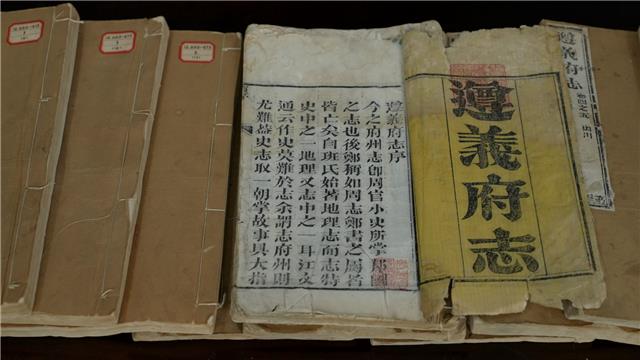 遵義府志
卷四之五 山川
遵義府志
遵義府志序
今之府州志卽周官小史所掌邦國
之志也後鄭稱如周志鄭書之屬者
皆亡矣自班氏始著地理志而志特
史中之一地理又志中之一耳江文
通云作史莫難於志余謂志府州則
尤難葢史志取一朝掌故事具大指